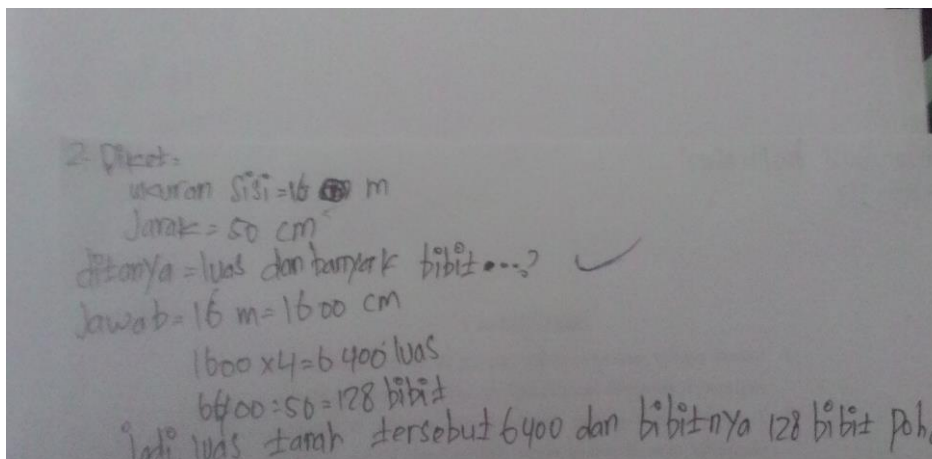 2. Diket =
ukuran sisi = 16 m
Jarak = 50 cm
ditanya = luas dan banyak bibit ....?
Jawab = 16 m = 1600 cm
1600 x 4 = 6400 luas
6400 : 50 = 128 bibit
Jadi luas tanah tersebut 6400 dan bibitnya 128 bibit poh